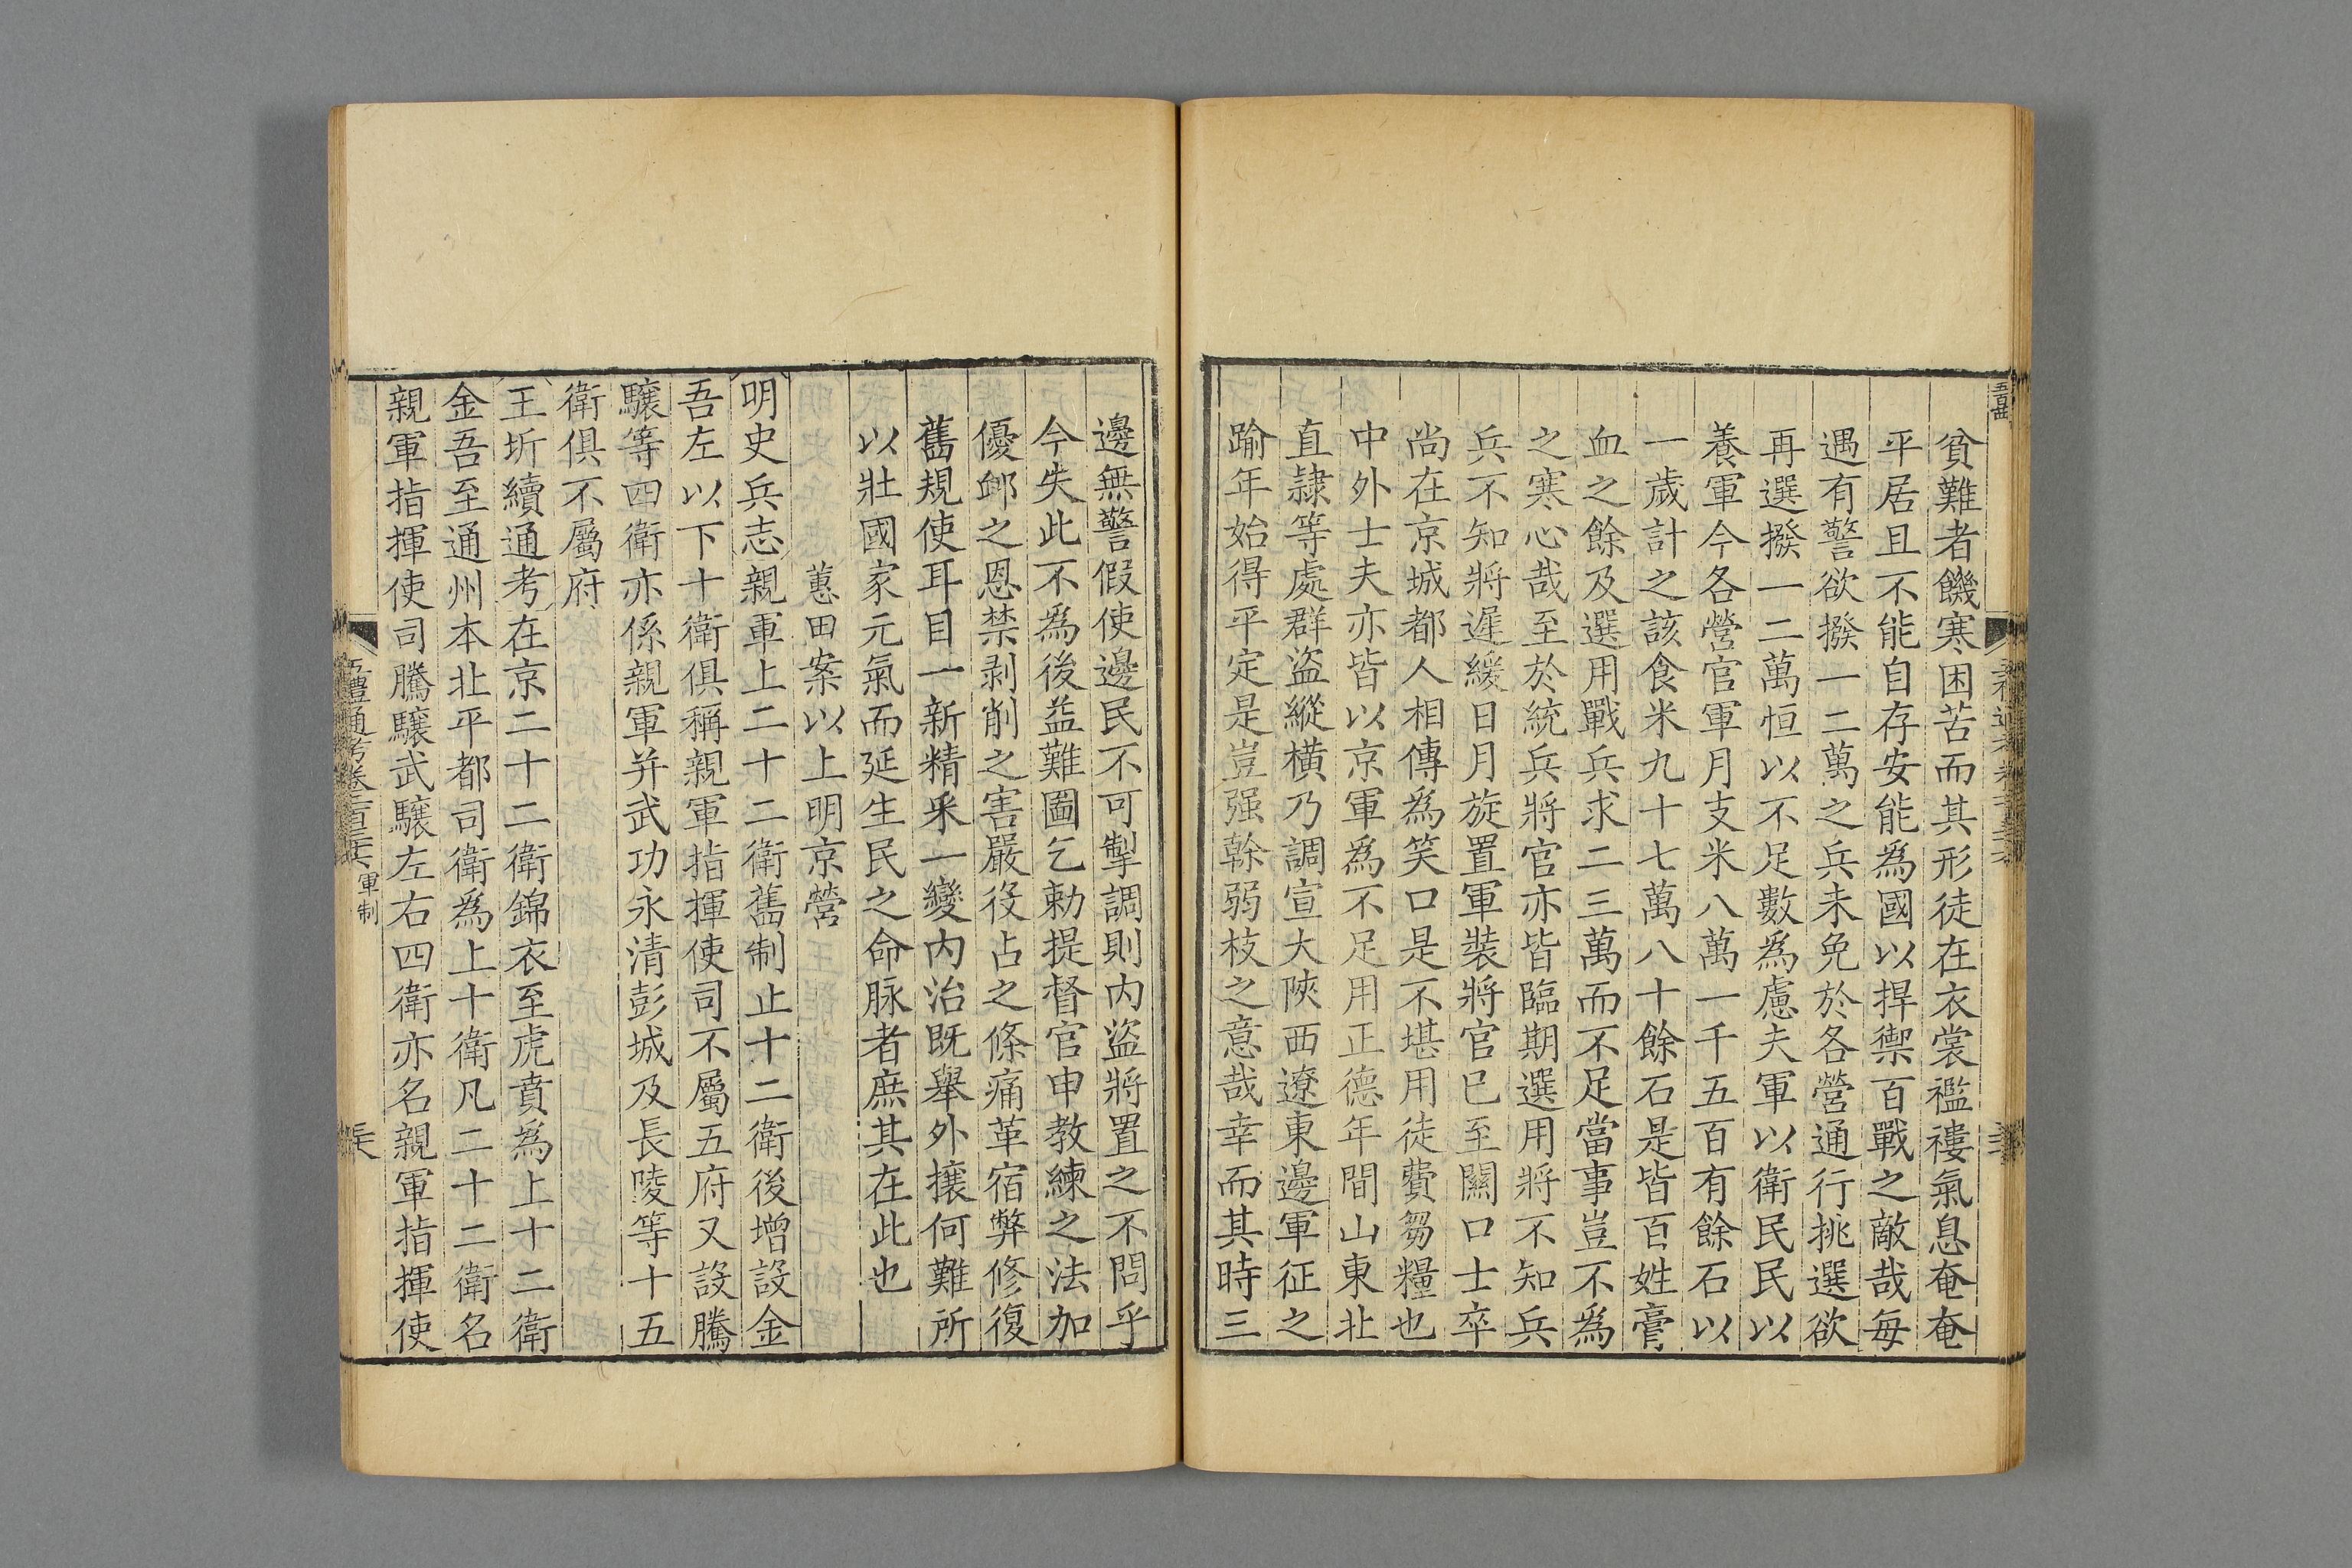 貧難者饑寒困苦而其形徒在衣裳襤褸氣息奄奄
平居且不能自存安能為國以捍禦百戰之敵哉每
遇有警欲撥一二萬之兵未免於各營通行挑選欲
再選撥一二萬恒以不足數為慮夫軍以衛民民以
養軍今各營官軍月支米八萬一千五百有餘石以
一歲計之該食米九十七萬八十餘石是皆百姓膏
血之餘及選用戰兵求二三萬而不足當事豈不為
之寒心哉至於統兵將官亦皆臨期選用將不知兵
兵不知將遲緩日月旋置軍裝將官已至關口士卒
尚在京城都人相傳為笑口是不堪用徒費芻糧也
中外士夫亦皆以京軍為不足用正德年間山東北
直隸等處群盜縱橫乃調宣大陝西遼東邊軍征之
踰年始得平定是豈强幹弱枝之意哉幸而其時三
邊無警假使邊民不可掣調則内盜將置之不問乎
今失此不為後益難圖乞勅提督官申教練之法加
優邺之恩禁剥削之害嚴役占之條痛革宿弊修復
舊規使耳目一新精采一變内治既舉外攘何難所
以壯國家元氣而延生民之命脉者庶其在此也
蕙田案以上明京營
明史兵志親軍上二十二衛舊制止十二衛後增設金
吾左以下十衛俱稱親軍指揮使司不屬五府又設騰
驤等四衛亦係親軍并武功永清彭城及長陵等十五
衛俱不屬府
王圻續通考在京二十二衛錦衣至虎賁為上十二衛
金吾至通州本北平都司衛為上十衛凡二十二衛名
親軍指揮使司騰驤武驤左右四衛亦名親軍指揮使
五禮通考卷二百三十六 軍制